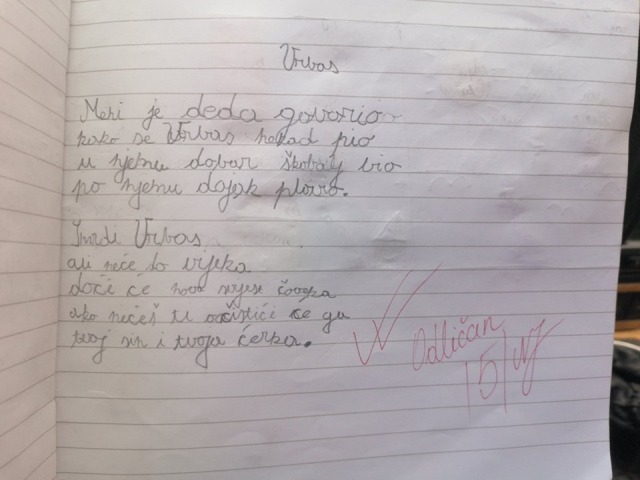 Vrbas
Meni je deda govorio
kako se Vrbas nekad pio
u njemu dobar škobalj bio
po njemu dajak plovio.
Smrdi Vrbas
ali neće do vijeka
doći će nova svijest čovjeka
ako nećeš ti očistići će ga
tvoj sin i tvoja ćerka.
Odličan
/5/